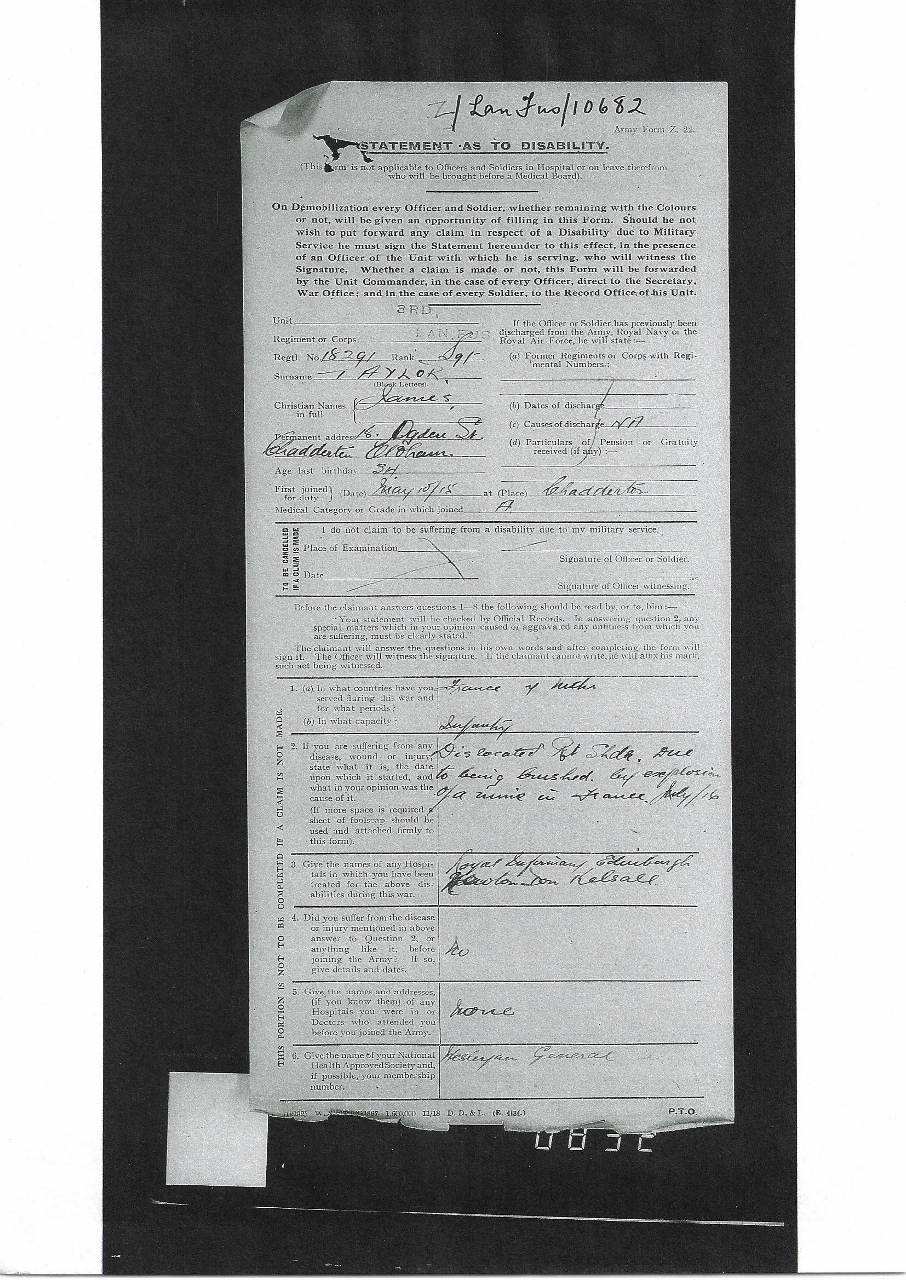 Z/ Lan Fus/10682
Army Form Z. 22.
STATEMENT AS TO DISABILITY.
(This Form is not applicable to Officers and Soldiers in Hospital or on leave therefrom
who will be brought before a Medical Board).
On Demobilization every Officer and Soldier, whether remaining with the Colours
or not, will be given an opportunity of filling in this Form. Should he not
wish to put forward any claim in respect of a Disability due to Military
Service he must sign the Statement hereunder to this effect, in the presence
of an Officer of the Unit with which he is serving, who will witness the
Signature. Whether a claim is made or not, this Form will be forwarded
by the Unit Commander, in the case of every Officer, direct to the Secretary,
War Office; and in the case of every Soldier, to the Record Office of his Unit.
Unit 3RD.
Regiment or Corps LAN FUS
Regtl. No. 18291 Rank Sgt
Surname TAYLOR.
(Block Letters)
Christian Names in full James,
Permanent address 16. Ogden St
Chadderton Oldham.
Age last birthday 34
First joined for duty (Date) May 10/15 at (Place) Chadderton
Medical Category or Grade in which joined A
If the Officer or Soldier has previously been
discharged from the Army, Royal Navy or the
Royal Air Force, he will state:—
(a) Former Regiments or Corps with Regi-
mental Numbers:
(b) Dates of discharge
(c) Causes of discharge NA
(d) Particulars of Pension or Gratuity
received (if any) :—
TO BE CANCELLED
IF A CLAIM IS MADE
I do not claim to be suffering from a disability due to my military service.
Place of Examination
Signature of Officer or Soldier.
Date
Signature of Officer witnessing.
Before the claimant answers questions 1—8 the following should be read by, or to, him :—
"Your statement will be checked by Official Records. In answering question 2, any
special matters which in your opinion caused or aggravated any unfitness from which you
are suffering, must be clearly stated."
The claimant will answer the questions in his own words and after completing the form will
sign it. The Officer will witness the signature. If the claimant cannot write, he will affix his mark,
such act being witnessed.
THIS PORTION IS NOT TO BE COMPLETED IF A CLAIM IS NOT MADE.
1. (a) In what countries have you
served during this war and
for what periods?
France
(b) In what capacity:
Infantry
2. If you are suffering from any
disease, wound or injury,
state what it is, the date
upon which it started, and
what in your opinion was the
cause of it.
(If more space is required a
sheet of foolscap should be
used and attached firmly to
this form).
Dislocated Rt Shdr. Due
to being crushed by explosion
of a mine in France July/16
3. Give the names of any Hospi-
tals in which you have been
treated for the above dis-
abilities during this war.
Royal Infirmary Edinburgh
Newton Don Kelsall
4. Did you suffer from the disease
or injury mentioned in above
answer to Question 2, or
anything like it, before
joining the Army? If so,
give details and dates.
No
5. Give the names and addresses,
(if you know them) of any
Hospitals you were in or
Doctors who attended you
before you joined the Army.
None
6. Give the name of your National
Health Approved Society and,
if possible, your membership
number.
Wesleyan General
1,500,000 11/18 D. D. & L.
P.T.O
0832